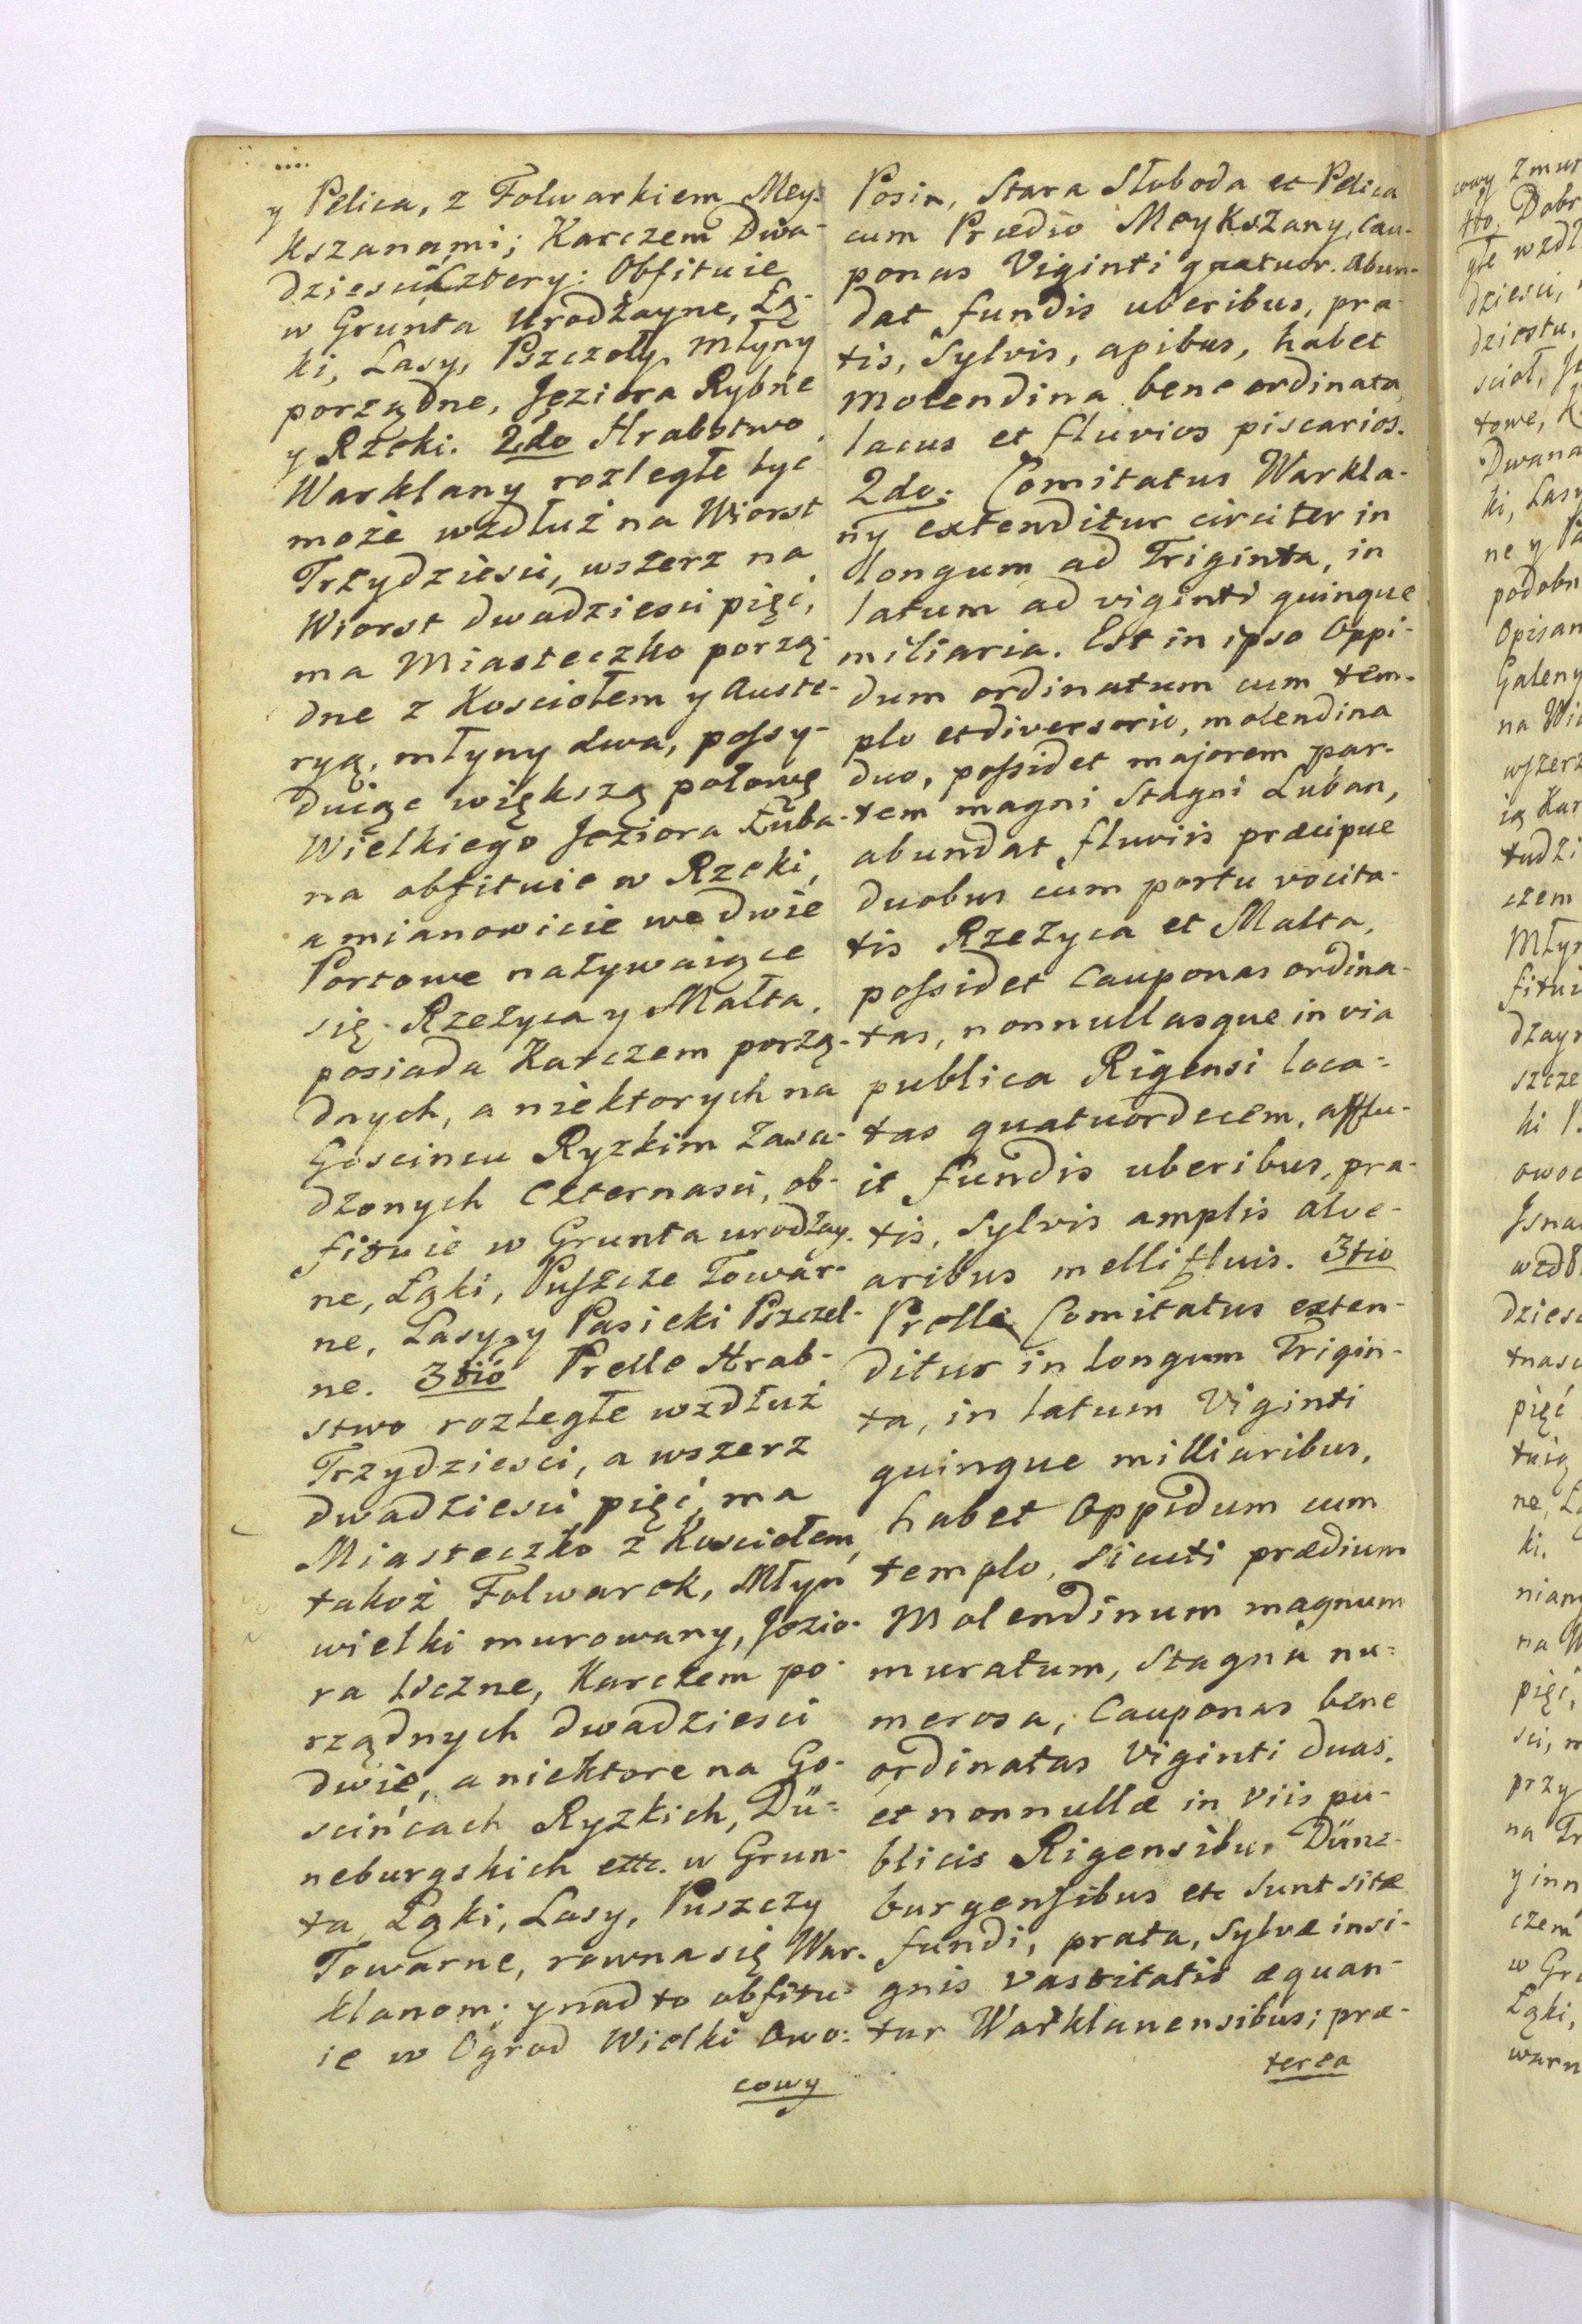 y Pelica, z Folwarkiem Mey-
kszanami; Karczem Dwa-
dziesciCztery: Obfituie
w Grunta Urodżayne, Łą-
ki, Lasy, Pszczoły, Młyny
porządne, Jeziora Rybne
y Rzeki. 2do Hrabstwo
Warklany rozległe być
może wzdłuż na Wiorst
Trzydziesci, wszerz na
Wiorst dwadziesci pięć,
ma Miasteczko porzą-
dne z Kosciołem y Auste-
ryą, młyny dwa, possy-
duiąc większą połowę
Wielkiego Jeziora Łuba-
na obfituie w Rzeki,
a mianowicie we dwie
Portowe nażywaiące
się Rzeżyca y Małta,
posiada Karczem porzą-
dnych, a niektorych na
Goscincu Ryzkim Zasa-
dzonych Czternasci, ob-
fituie w Grunta urodzay-
ne, Łąki, Puszcze Towar-
ne, Lasy, y Pasieki Pszczel-
ne. 3tio Prelle Hrab-
stwo rozległe wzdłuż
Trzydziesci, a wszerz
dwadziesci pięć, ma
Miasteczko z Kosciołem,
takoż Folwarek, Młyn
wielki murowany, Jezio-
ra liczne, Karczem po-
rządnych dwadziesci
dwie, a niektore na Go-
scińcach Ryzkich, Dü-
neburgskich ettc. w Grun-
ta, Łąki, Lasy, Puszczy
Towarne, rowna się War-
klanom; y nad to obfitu-
ie w Ogrod Wielki Owo-
cowy
Posin, Stara Słoboda et Pelica
cum Prædio Meykszany, Cau-
ponas Viginti quatuor. Abun-
dat fundis uberibus, pra-
tis, Sylvis, apibus, habet
Molendina bene ordinata,
lacus et fluvios piscarios.
2do: Comitatus Warkla-
ny extenditur circiter in
longum ad Triginta, in
latum ad viginti quinque
miliaria. Est in ipso Oppi-
dum ordinatum cum tem-
plo et diversorio, molendina
duo, possidet majorem par-
tem magni Stagni Luban,
abundat fluviis præcipue
duobus cum portu vocita-
tis Rzeżyca et Malta,
possidet Cauponas ordina-
tas, nonnullasque in via
publica Rigensi loca-
tas quatuordecem, afflu-
it fundis uberibus, pra-
tis, Sylvis amplis alve-
aribus mellifluis. 3tio
Prelle Comitatus exten-
ditur in longum Trigin-
ta, in latum Viginti
quinque milliaribus,
habet Oppidum cum
templo, sicuti prædium
Molendinum magnum
muratum, Stagna nu-
merosa, Cauponas bene
ordinatas Viginti duas,
et nonnullæ in viis pu-
blicis Rigensibus Düne-
burgensibus etc sunt sitæ
fundi, prata, Sylvæ insi-
gnis vastitatis æquan-
tur Warklanensibus; præ-
terea